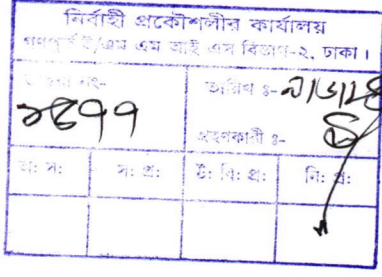 নির্বাহী প্রকৌশলীর কার্যালয়
গণপূর্ত ই/এম এম আই এস বিভাগ-২, ঢাকা।
নং-
তারিখ ঃ-
গ্রহণকারী ঃ-
স: প্র: উ: বি: প্র: নি: প্র: